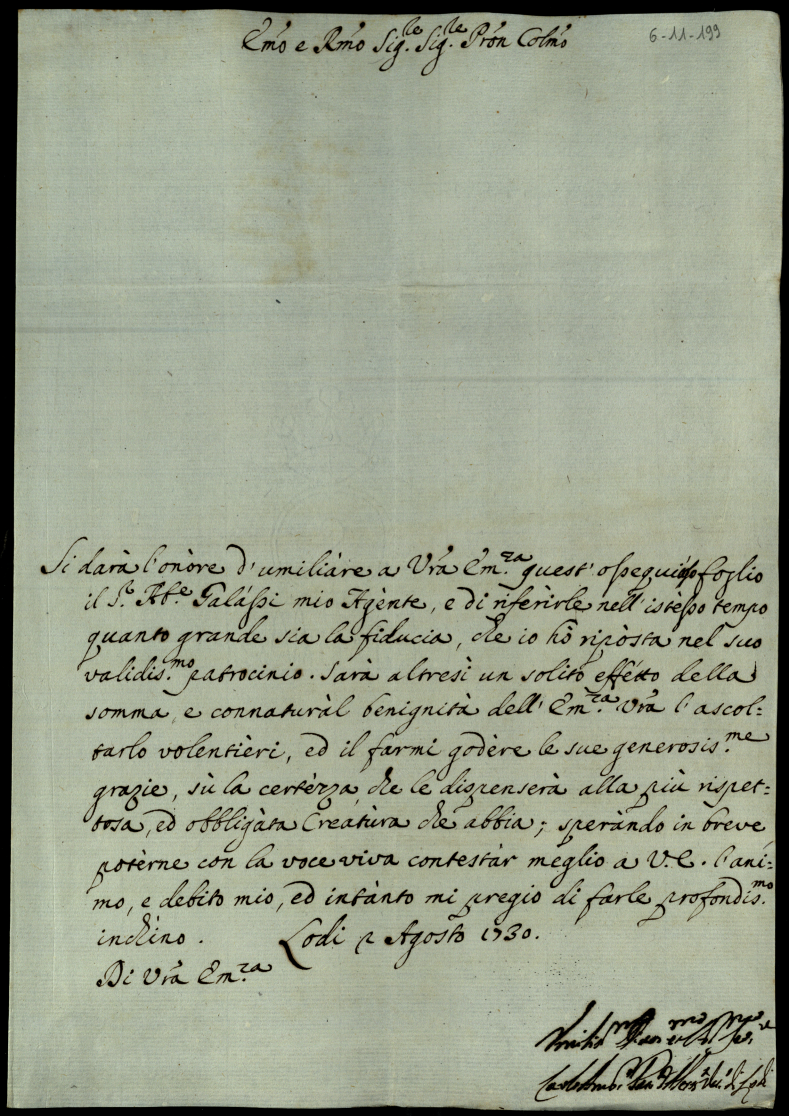 Emo e Rmo Sig.re Sig.re Pron Colmo
6-11-199
Si darà l'onòre d'umiliàre a Vrã Em.za quest' ossequioso foglio
il S.r Ab.e Galássi mio Agènte, e di riferirle nell'istèsso tempo
quanto grande sia la fiducia, che io hò ripòsta nel suo
validis.mo patrocinio. Sarà altresì un solito effétto della
somma, e connaturàl benignità dell' Em.za Vrã l'ascol=
tarlo volentièri, ed il farmi godère le sue generosis.me
grazie, sù la certèzza che le dispenserà alla più rispet=
tosa, ed obbligàta Creatùra che abbia; speràndo in breve
potèrne con la voce viva contestàr meglio a V.E. l'ani=
mo, e debito mio, ed intànto mi pregio di farle profondis.mo
inchino. Lodi 2 Agosto 1730.
Di Vrã Em.za